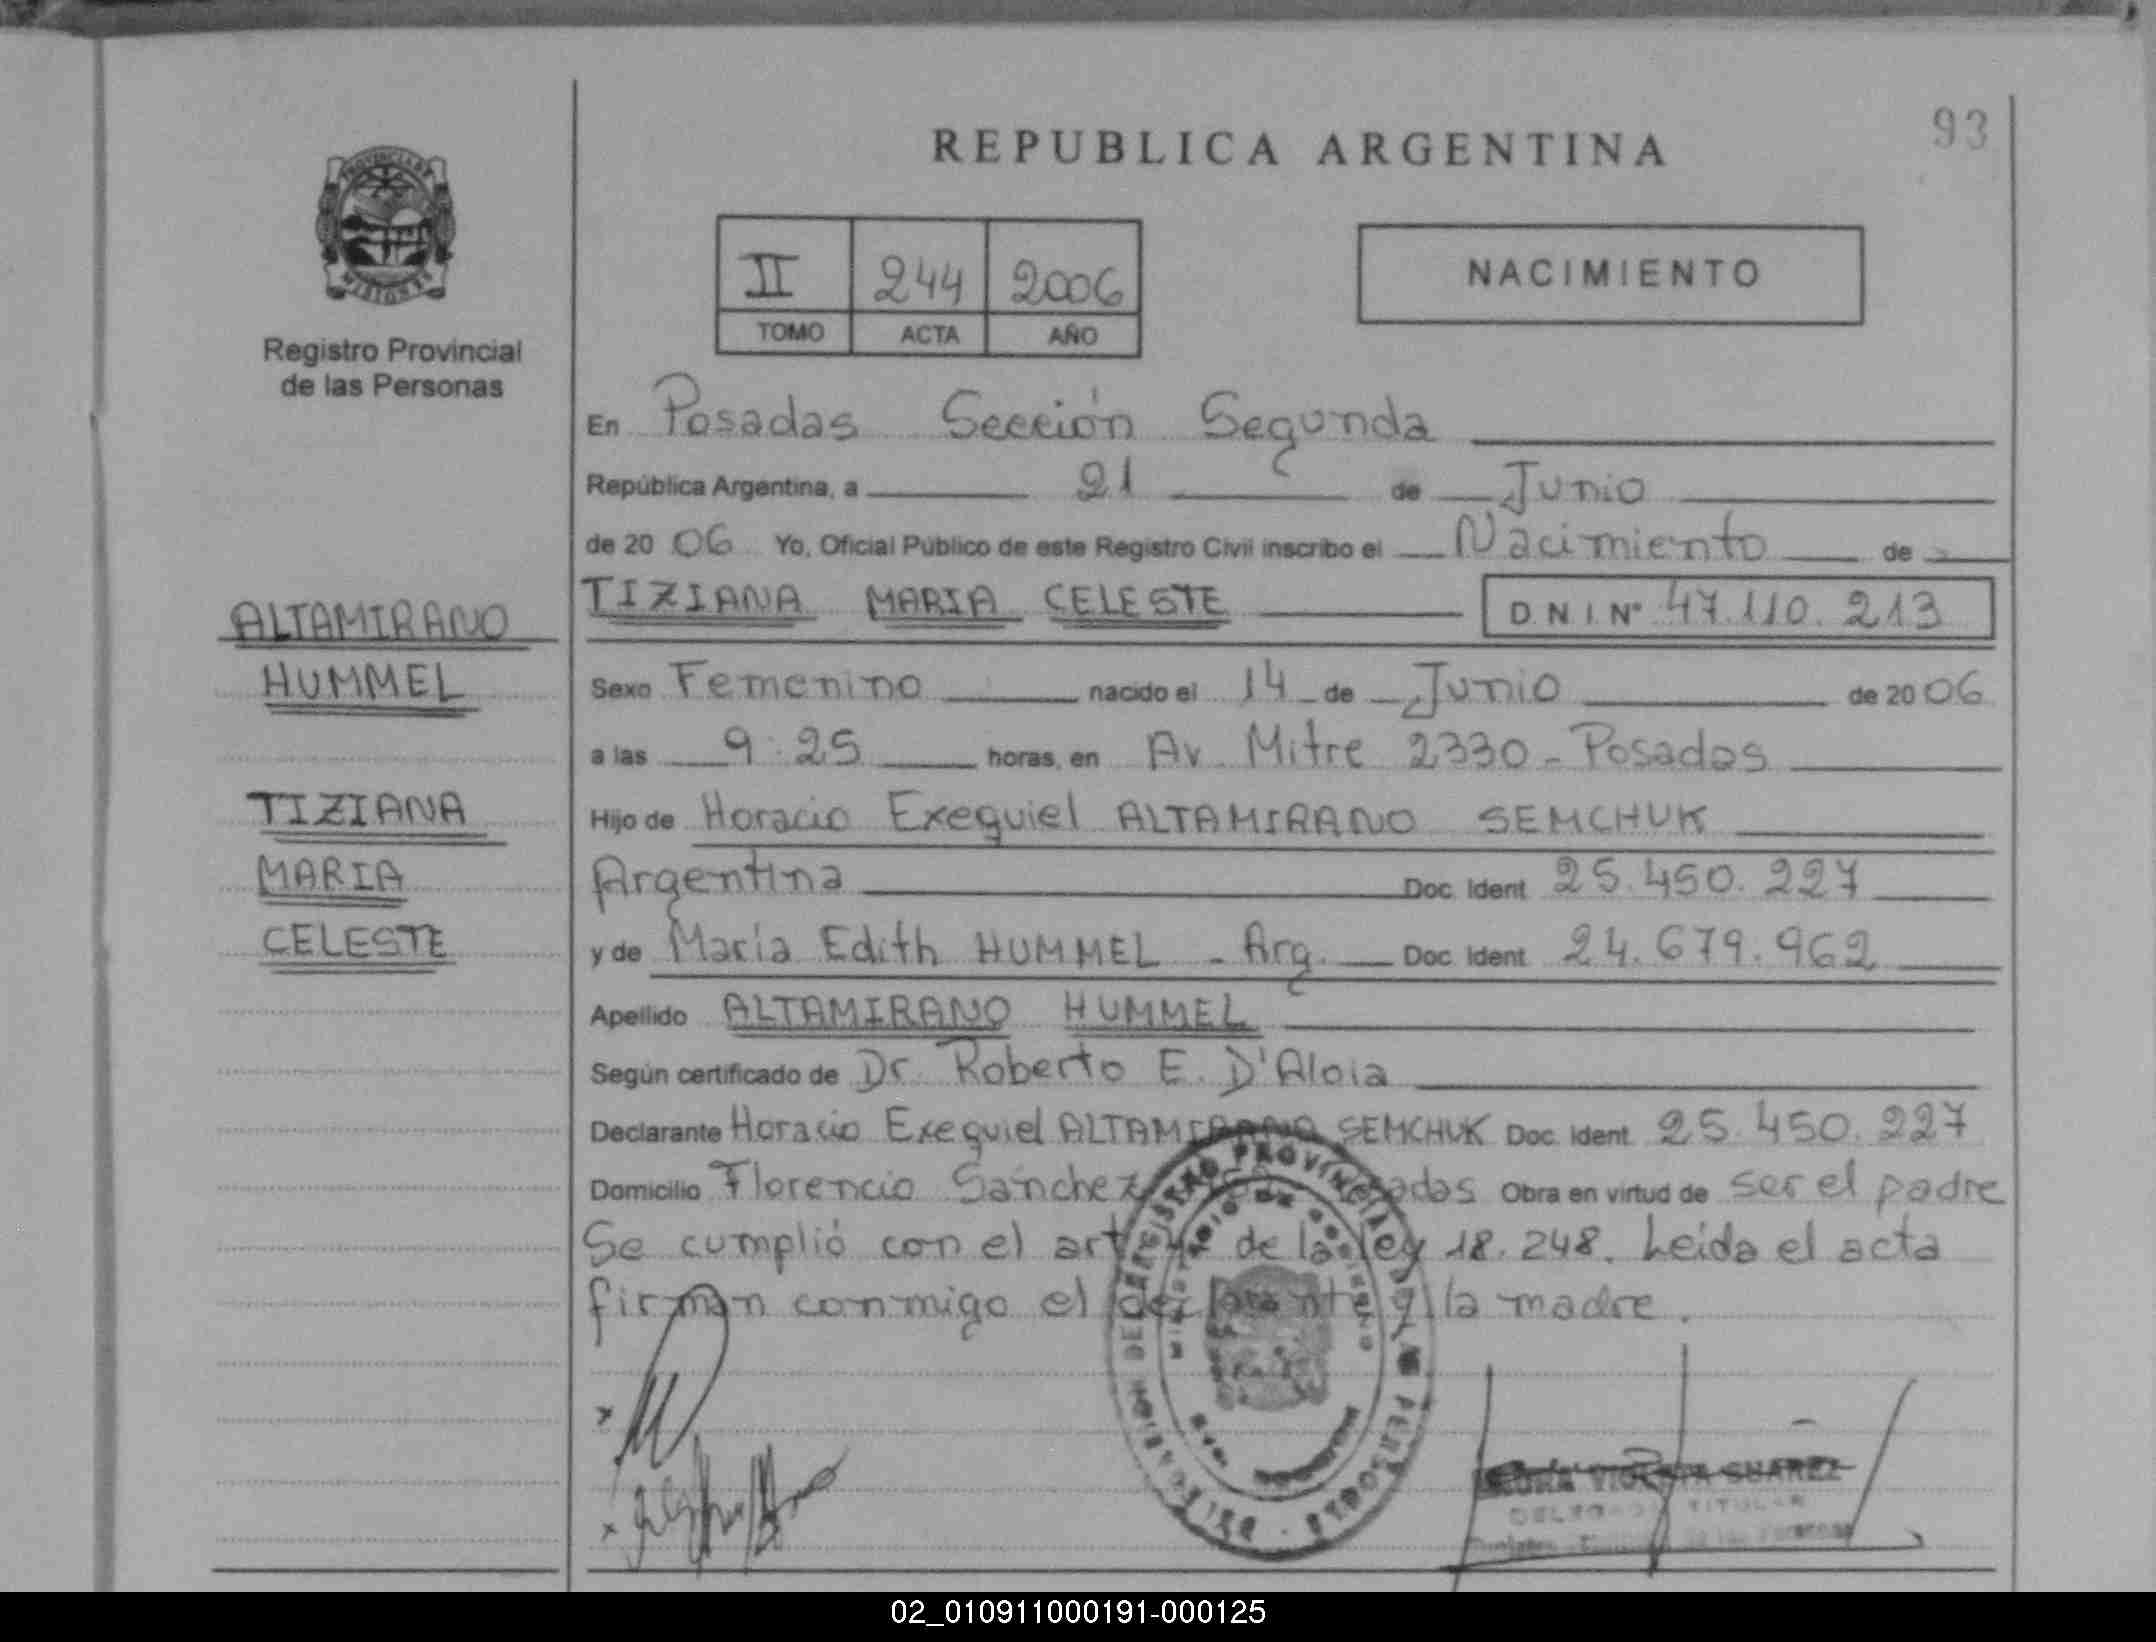 93
REPUBLICA ARGENTINA
PROVINCIA DE
MISIONES
Registro Provincial
de las Personas
II 244 2006
TOMO ACTA AÑO
NACIMIENTO
En Posadas Sección Segunda
República Argentina, a 21 de Junio
de 20 06 Yo, Oficial Público de este Registro Civil inscribo el Nacimiento de
TIZIANA MARIA CELESTE D.N.I. Nº 47.110.213
ALTAMIRANO
HUMMEL
TIZIANA
MARIA
CELESTE
Sexo Femenino nacido el 14 de Junio de 20 06
a las 9:25 horas, en Av. Mitre 2330 - Posadas
Hijo de Horacio Exequiel ALTAMIRANO SEMCHUK
Argentina Doc. Ident. 25.450.227
y de María Edith HUMMEL - Arg. Doc. Ident. 24.679.962
Apellido ALTAMIRANO HUMMEL
Según certificado de Dr. Roberto E. D'Aloia
Declarante Horacio Exequiel ALTAMIRANO SEMCHUK Doc. Ident. 25.450.227
Domicilio Florencio Sánchez Posadas Obra en virtud de ser el padre
Se cumplió con el art de la ley 18.248. Leida el acta
firman conmigo el declarante y la madre.
REGISTRO PROVINCIAL DE LAS PERSONAS
MINISTERIO DE GOBIERNO
SUAREZ
TITULAR
02_010911000191-000125